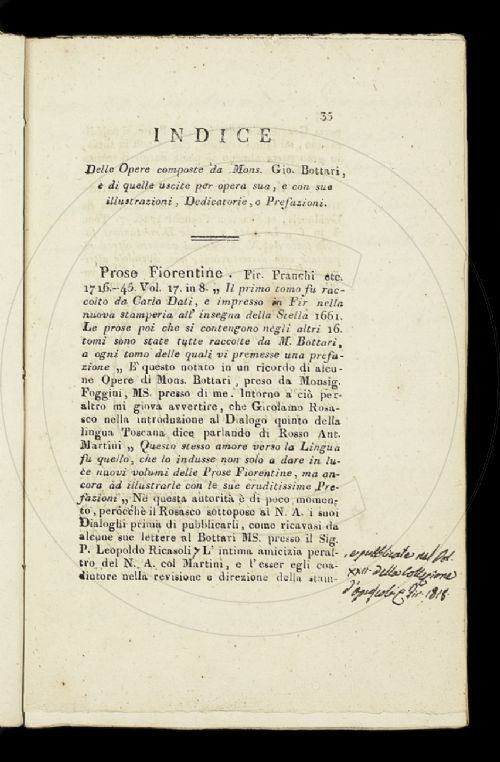 35
INDICE
Delle Opere composte da Mons. Gio. Bottari,
e di quelle uscite per opera sua, e con sue
illustrazioni, Dedicatorie, o Prefazioni.
Prose Fiorentine. Fir. Franchi etc.
1716.-45. Vol. 17. in 8. „ Il primo tomo fù rac-
colto da Carlo Dati, e impresso in Fir nella
nuova stamperia all' insegna della Stella 1661.
Le prose poi che si contengono negli altri 16.
tomi sono state tutte raccolte da M. Bottari,
a ogni tomo delle quali vi premesse una prefa-
zione „ E' questo notato in un ricordo di alcu-
ne Opere di Mons. Bottari, preso da Monsig.
Foggini, MS. presso di me. Intorno a ciò per-
altro mi giova avvertire, che Girolamo Rosa-
sco nella introduzione al Dialogo quinto della
lingua Toscana dice parlando di Rosso Ant.
Martini „ Questo stesso amore verso la Lingua
fù quello, che lo indusse non solo a dare in lu-
ce nuovi volumi delle Prose Fiorentine, ma an-
cora ad illustrarle con le sue eruditissime Pre-
fazioni „ Nè questa autorità è di poco momen-
to, perocchè il Rosasco sottopose al N. A. i suoi
Dialoghi prima di pubblicarli, come ricavasi da
alcune sue lettere al Bottari MS. presso il Sig.
P. Leopoldo Ricasoli L' intima amicizia peral-
tro del N. A. col Martini, e l'esser egli coa-
diutore nella revisione e direzione della stam-
, e pubblicate nel Vol.
XXII della Collezione
d'Opuscoli Fir. 1818